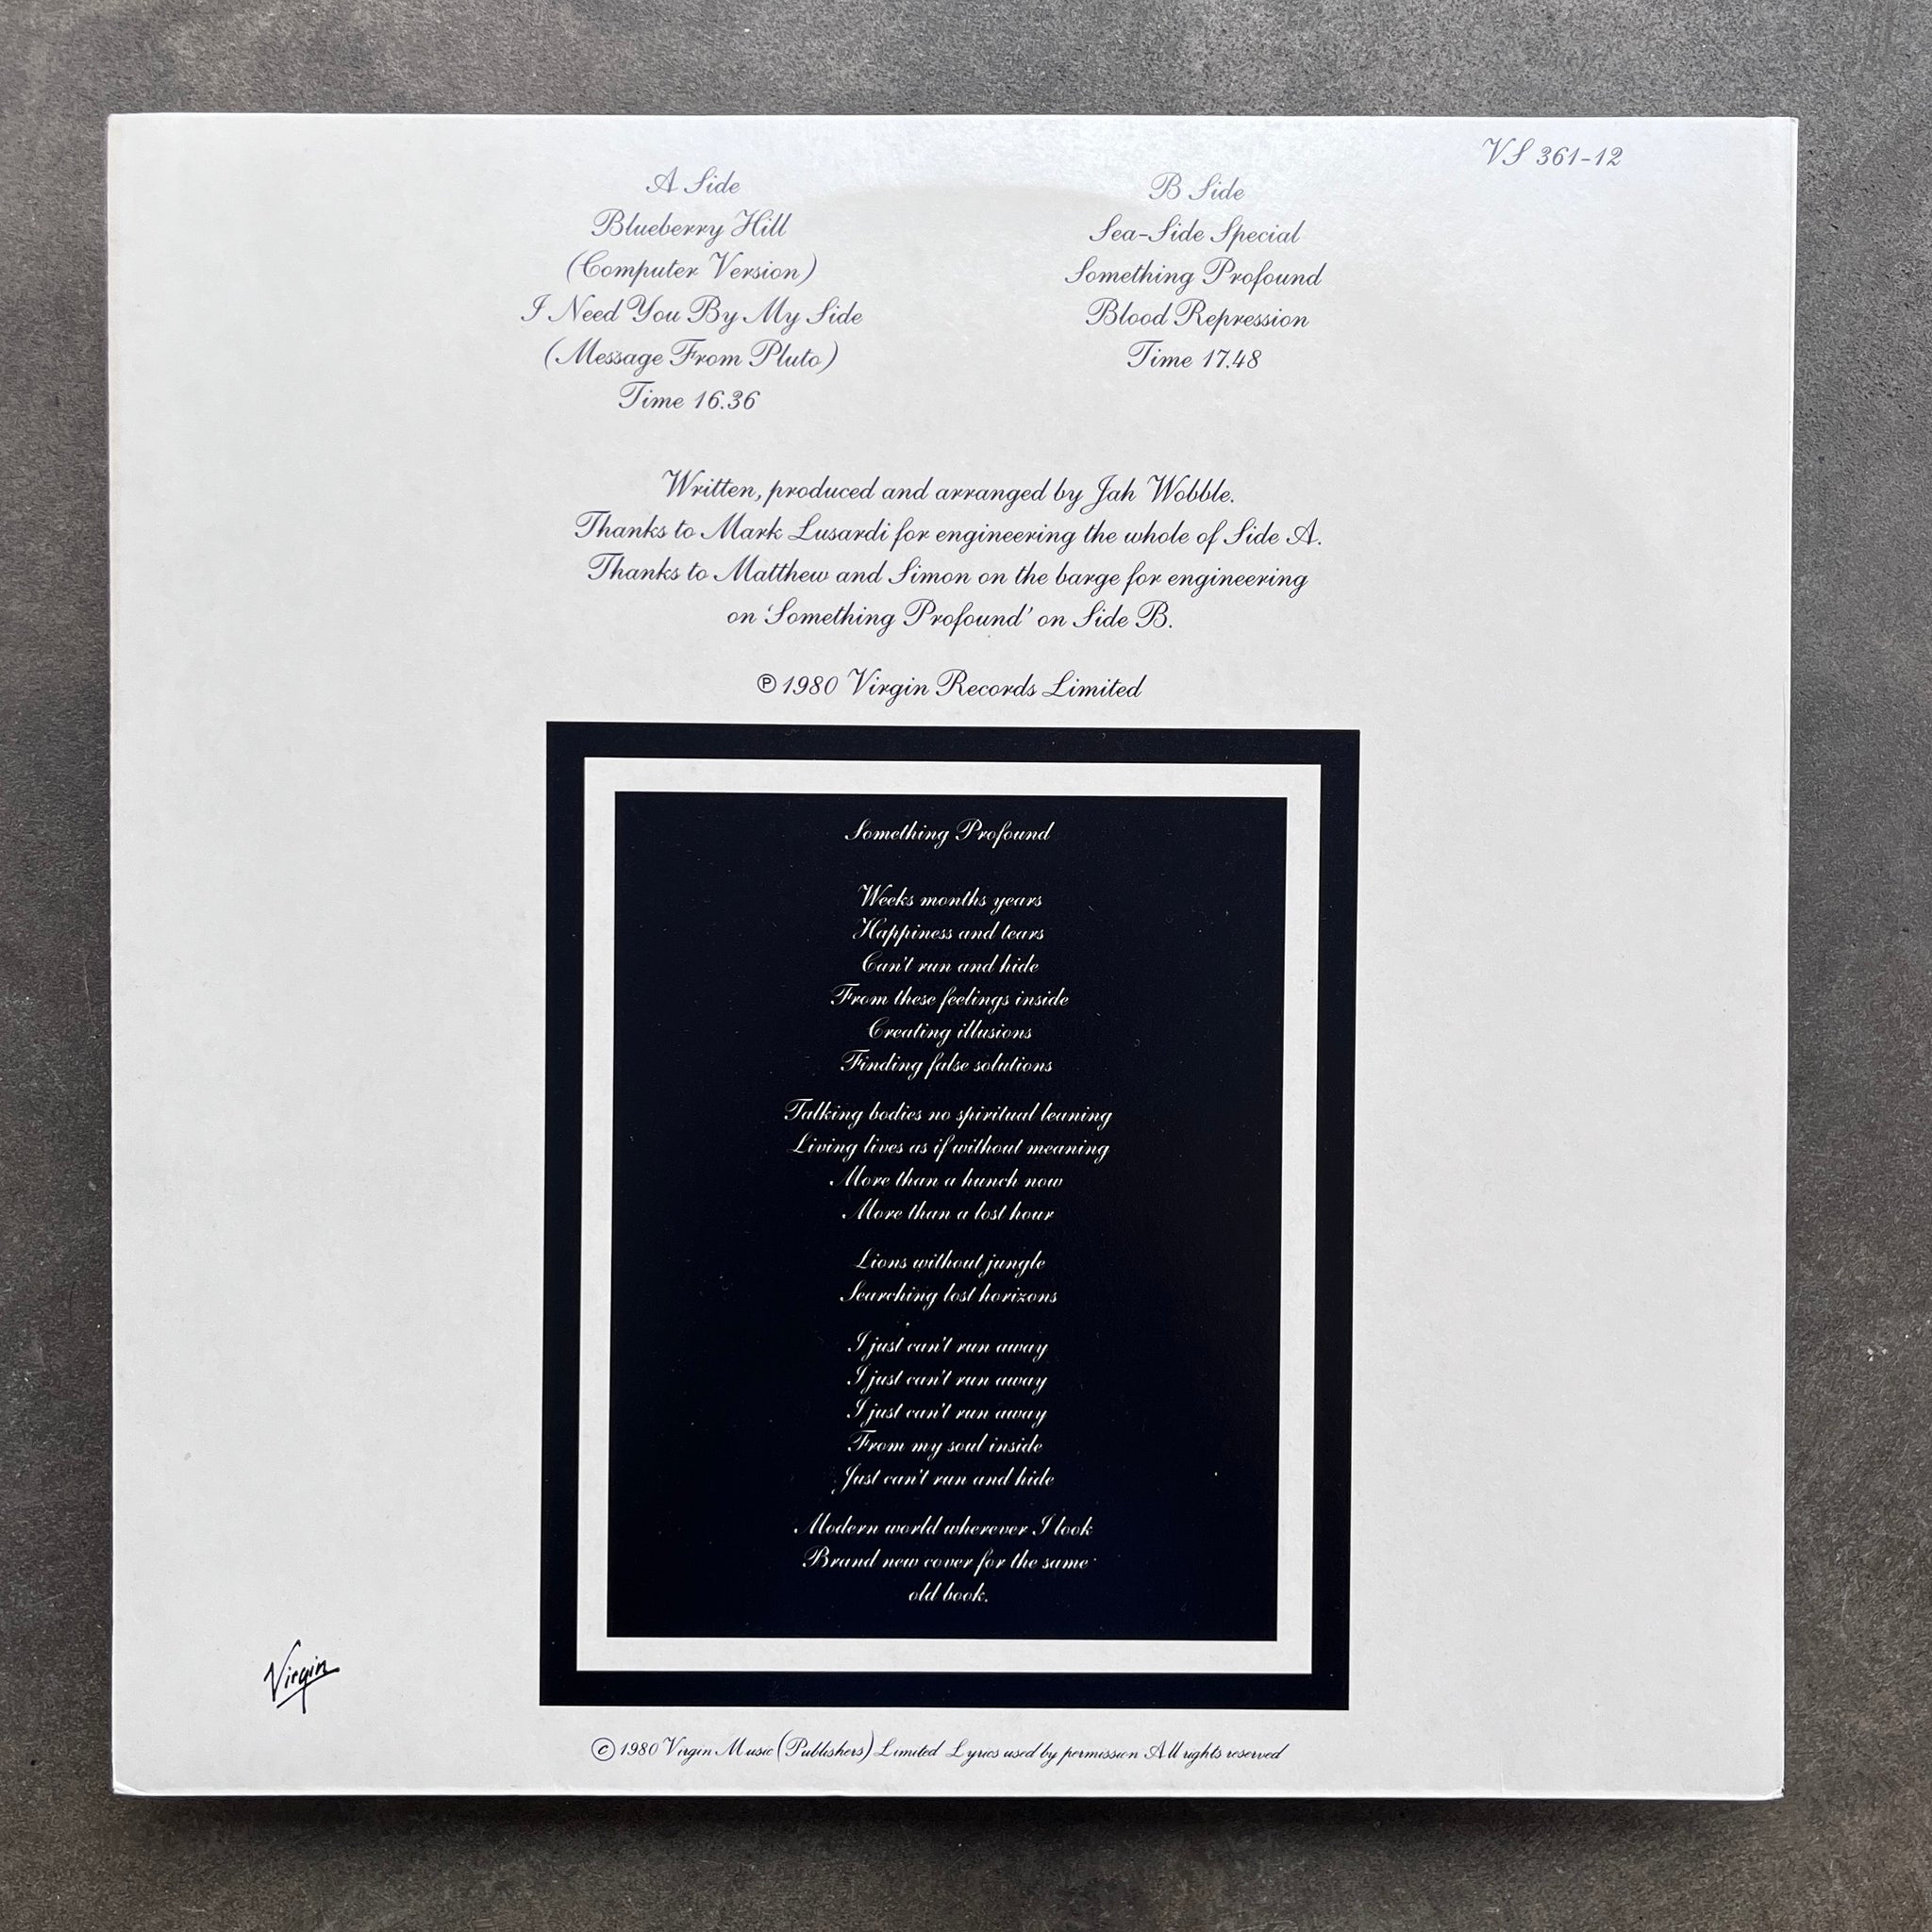 VS 361-12
A Side
Blueberry Hill
(Computer Version)
I Need You By My Side
(Message From Pluto)
Time 16.36
B Side
Sea-Side Special
Something Profound
Blood Repression
Time 17.48
Written, produced and arranged by Jah Wobble.
Thanks to Mark Lusardi for engineering the whole of Side A.
Thanks to Matthew and Simon on the barge for engineering
on ‘Something Profound’ on Side B.
℗ 1980 Virgin Records Limited
Something Profound
Weeks months years
Happiness and tears
Can't run and hide
From these feelings inside
Creating illusions
Finding false solutions
Talking bodies no spiritual leaning
Living lives as if without meaning
More than a hunch now
More than a lost hour
Lions without jungle
Searching lost horizons
I just can't run away
I just can't run away
I just can't run away
From my soul inside
Just can't run and hide
Modern world wherever I look
Brand new cover for the same
old book.
Virgin
© 1980 Virgin Music (Publishers) Limited Lyrics used by permission All rights reserved